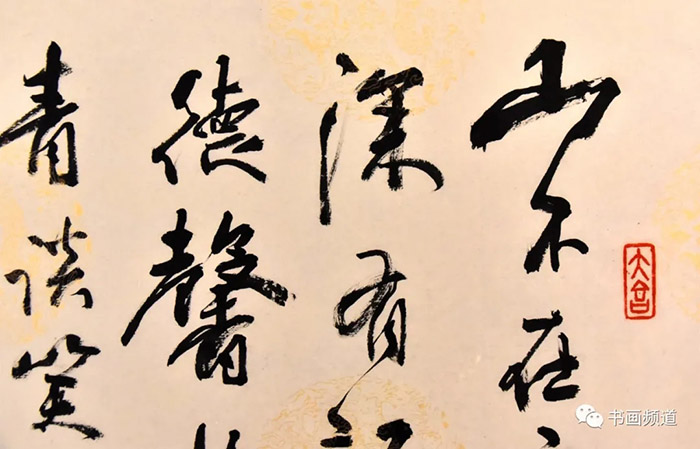 山不在
深有
德馨
青谈笑
书画频道